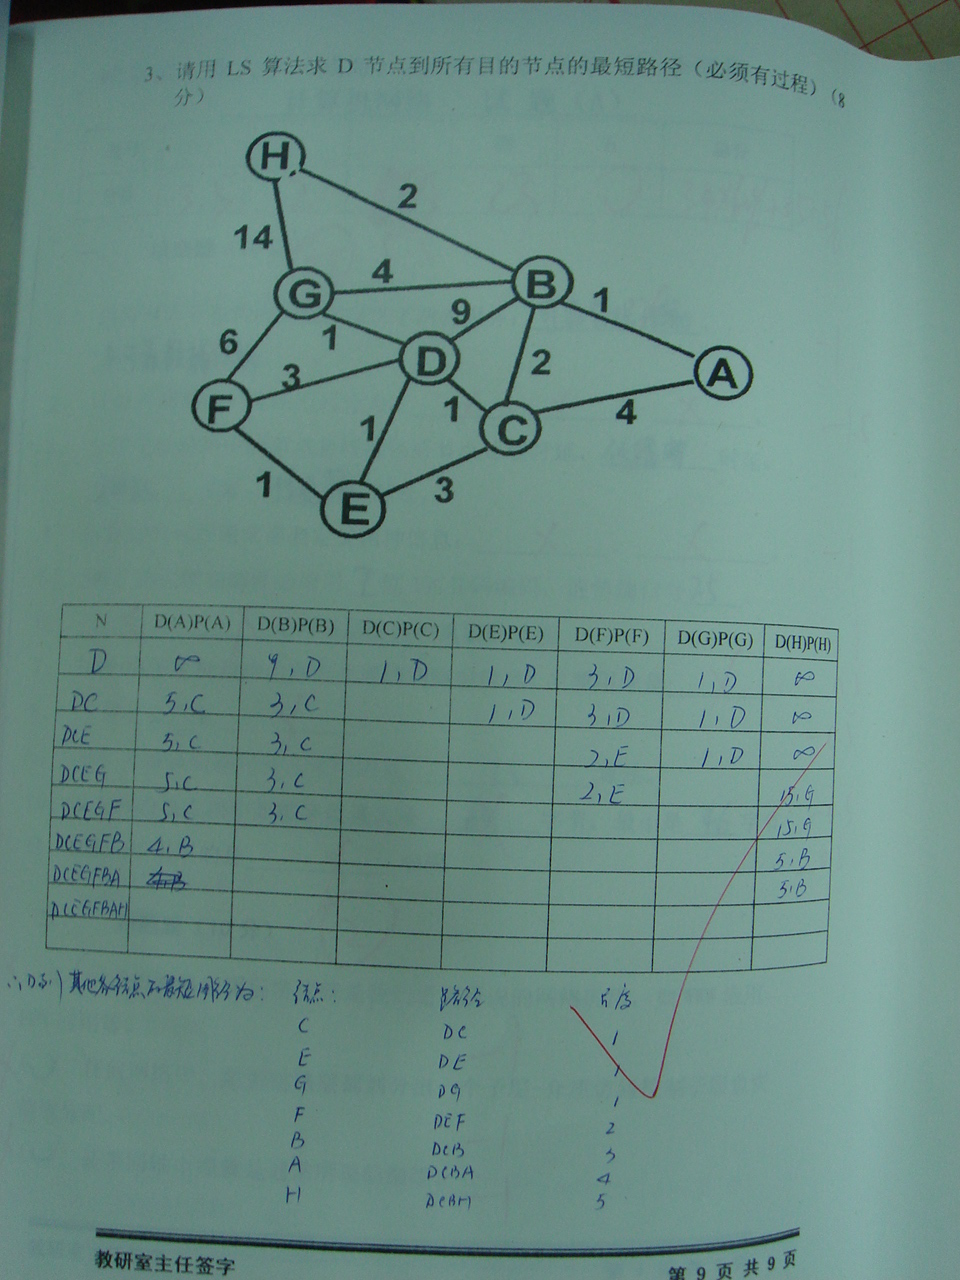 3、请用 LS 算法求 D 节点到所有目的节点的最短路径（必须有过程）（8
分）
H
2
14
G
4
B
9
1
6
1
D
2
A
3
F
1
1
C
4
1
3
E
N D(A)P(A) D(B)P(B) D(C)P(C) D(E)P(E) D(F)P(F) D(G)P(G) D(H)P(H)
D ∞ 9,D 1,D 1,D 3,D 1,D ∞
DC 5,C 3,C 1,D 3,D 1,D ∞
DCE 5,C 3,C 2,E 1,D ∞
DCEG 5,C 3,C 2,E 15,G
DCEGF 5,C 3,C 15,G
DCEGFB 4,B 5,B
DCEGFBA 4,B 5,B
DCEGFBAH
∴D到其他各结点的最短路径为： 结点： 路径 长度
C DC 1
E DE 1
G DG 1
F DEF 2
B DCB 3
A DCBA 4
H DCBH 5
教研室主任签字 第 9 页 共 9 页